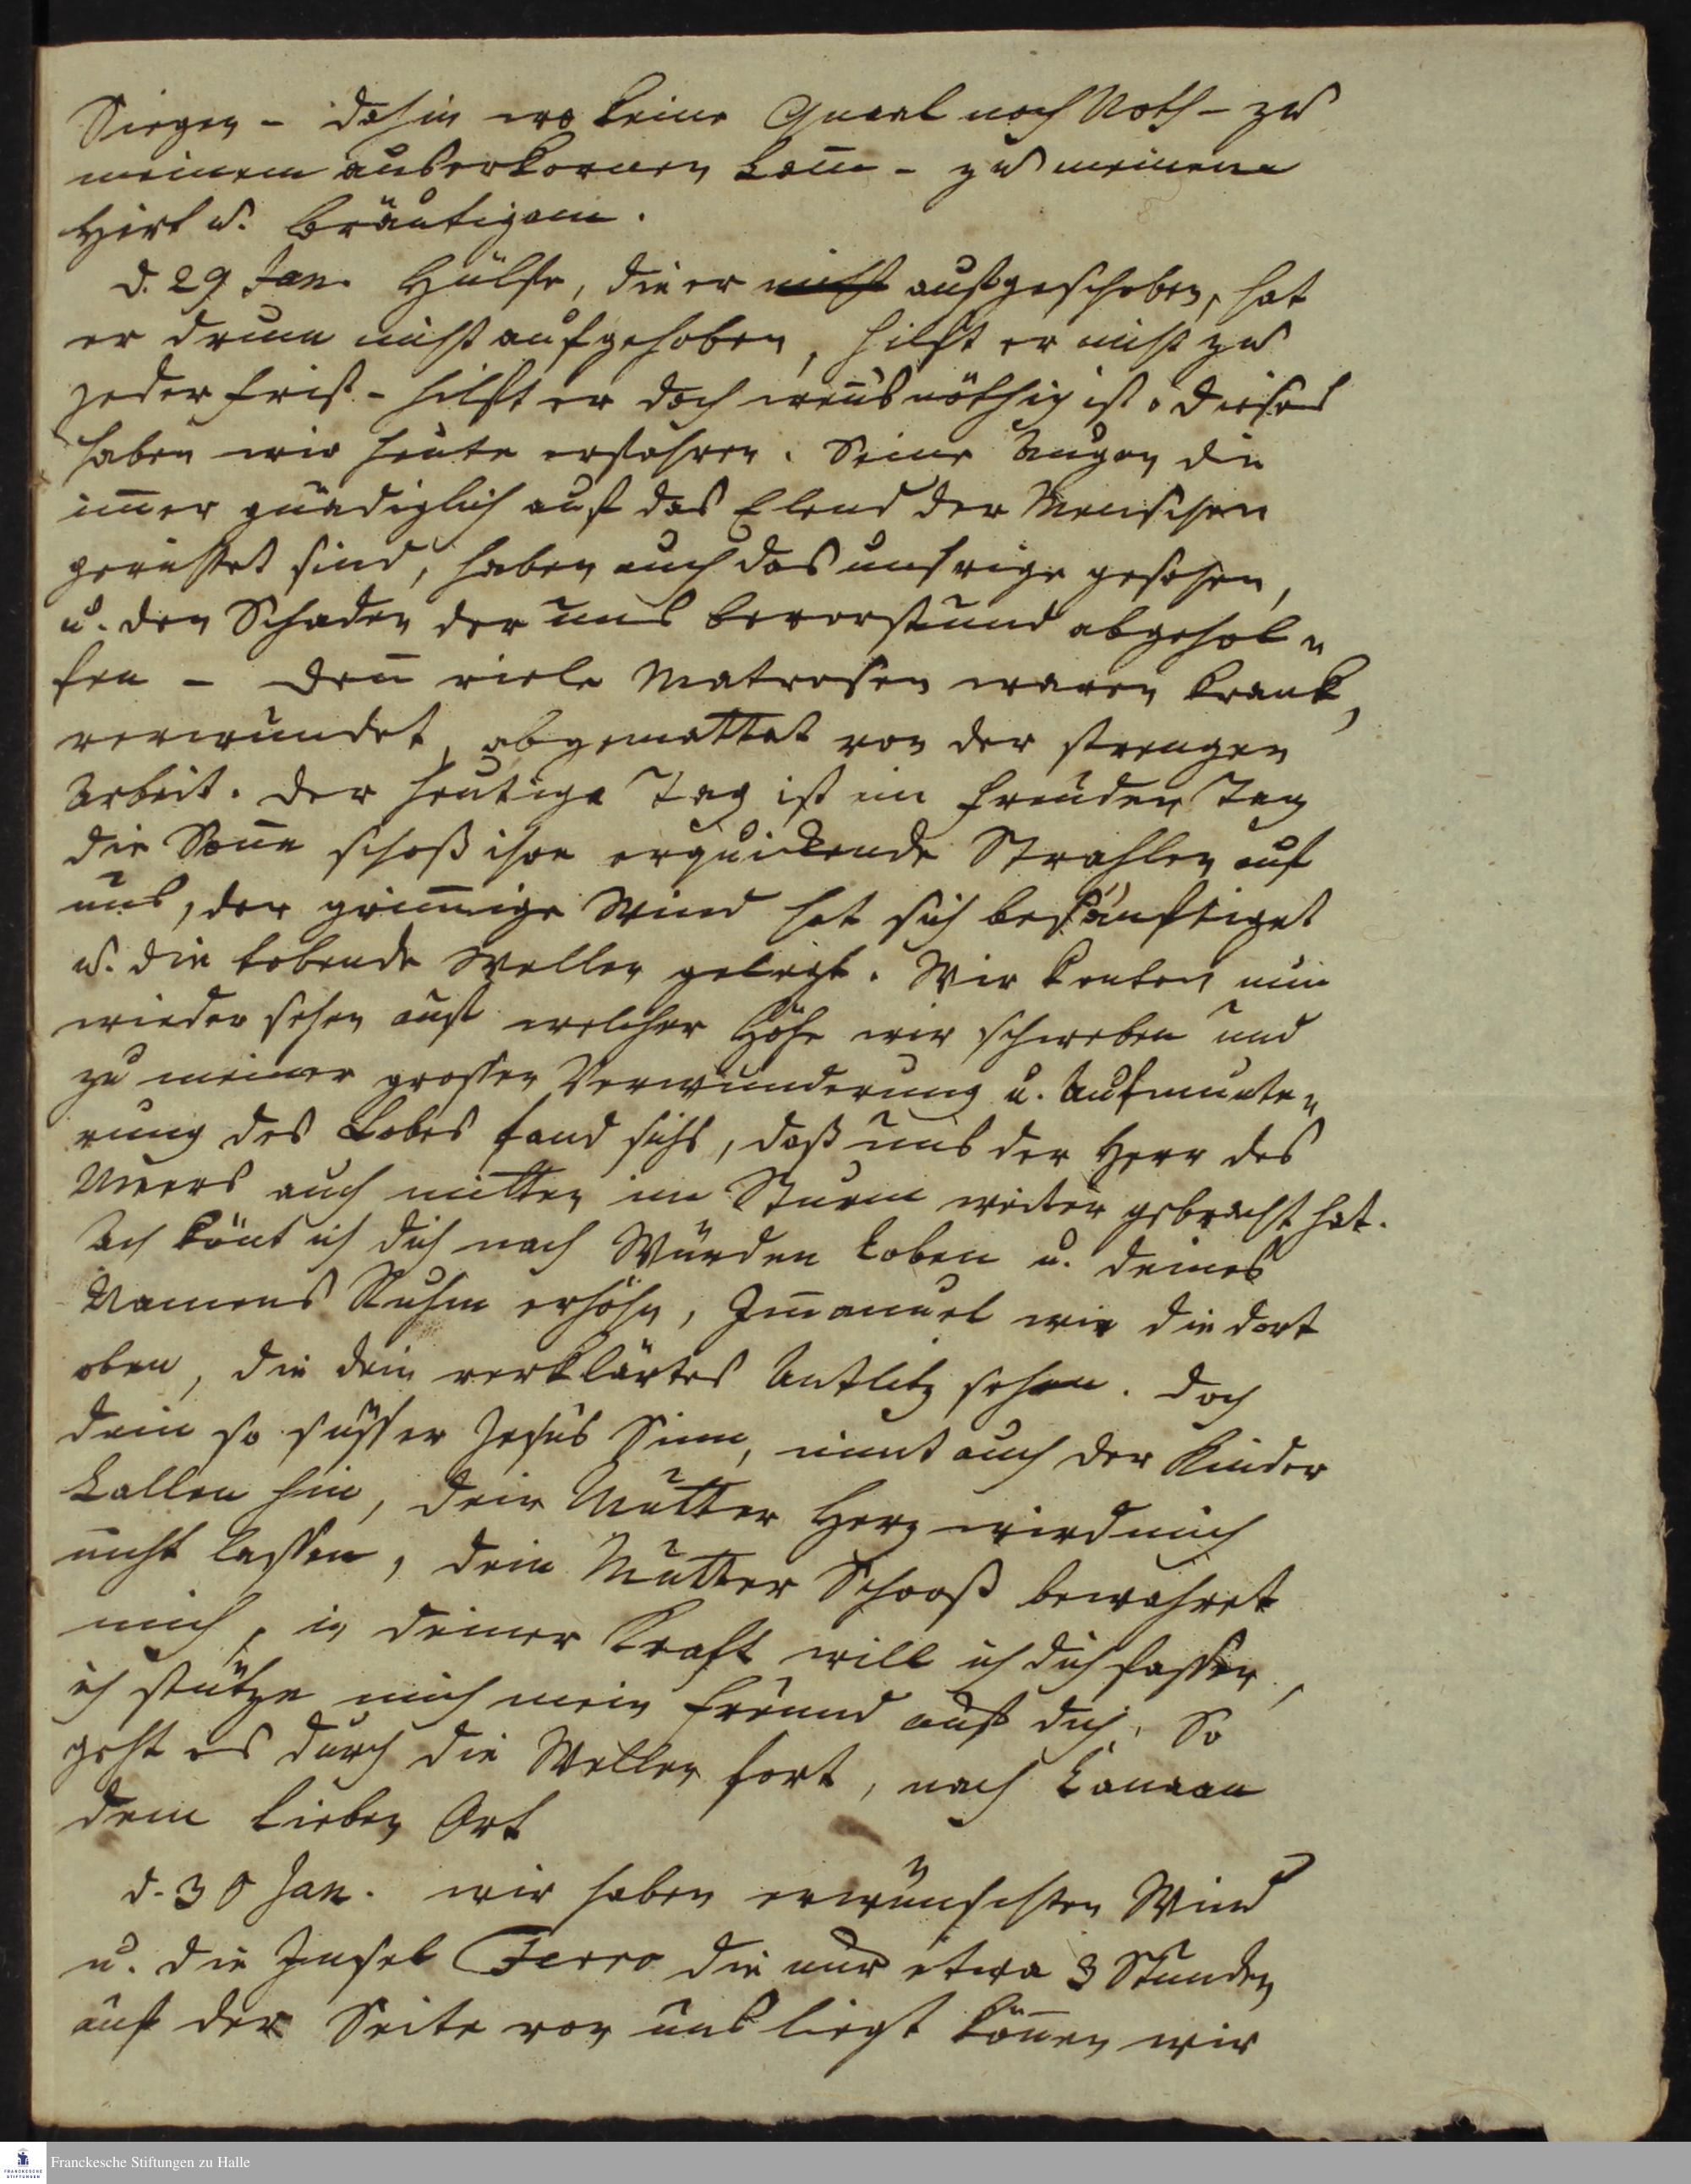 Siegen – dahin wo keine Quaal noch Noth – zu
meinem auserkornen Lam̄ – zu meinem
Hirt u. Bräutigam.
d. 29 Jan. Hülfe, die er nicht aufgeschoben, hat
er drum nicht aufgehoben, hilft er nicht zu
jeder Frist – hilft er doch wen̄s nöthig ist. dieses
haben wir heute erfahren. Seine Augen die
im̄er gnädiglich auf das Elend der Menschen
gerichtet sind, haben auch das unsrige gesehen,
u. den Schaden der uns bevorstund abgehol-
fen – den̄ viele Matrosen waren krank,
verwundet, abgemattet von der strengen
Arbeit. der heutige Tag ist ein Freuden Tag
die Son̄e schoß ihre erquickende Strahlen auf
uns, der grim̄ige Wind hat sich besänftiget
u. die tobende Wellen gelegt. Wir konten nun
wieder sehen auf welcher Höhe wir schweben und
zu meiner grossen Verwunderung u. Aufmunte-
rung des Lobes fand sichs, daß uns der Herr des
Meers auch mitten im Sturm weiter gebracht hat.
Ach könt ich dich nach Würden loben u. deines
Namens Ruhm erhöhn, Im̄anuel wie die dort
oben, die dein verklärtes Antlitz sehen. doch
dein so süsser Jesus Sinn, nimt auch der Kinder
Lallen hin, dein Mutter Herz wird mich
nicht lassen, dein Mutter Schooß bewahret
mich, in deiner Kraft will ich dich fassen,
ich stütze mich mein Freund auf dich, So
geht es durch die Wellen fort, nach Canaan
dem lieben Ort
d. 30 Jan. wir haben erwünschten Wind
u. die Insel Ferro die nur etwa 3 Stunden
auf der Seite von uns liegt kön̄en wir
Franckesche Stiftungen zu Halle